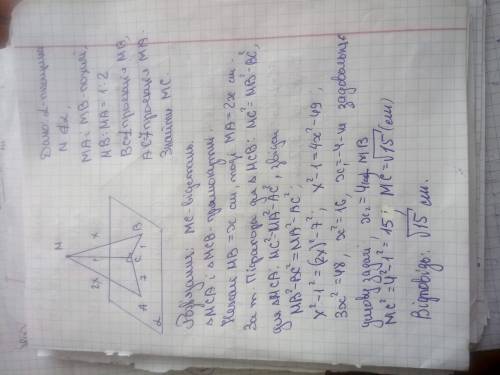 Дано: α-площина
M ∉ α,
MA і MB-похилі,
MB:MA = 1:2
BC-проєкція MB,
AC-проєкція MA.
Знайти MC.
M
2x
x
A
7
C
1
B
α
Розв'язання: MC-відстань.
△MCA і △MCB-прямокутні.
Нехай MB = x см, тоді MA = 2x см.
За т. Піфагора для △MCB: MC² = MB²-BC²,
для △MCA: MC²=MA²-AC², звідси
MB²-BC² = MA²-AC².
x²-1² = (2x)²-7², x²-1 = 4x²-49,
3x² = 48, x² = 16, x = -4-не задовольняє
умову задачі x₂ = 4 MB
MC² = 4²-1² = 15; MC = √15 (см)
Відповідь: √15 см.